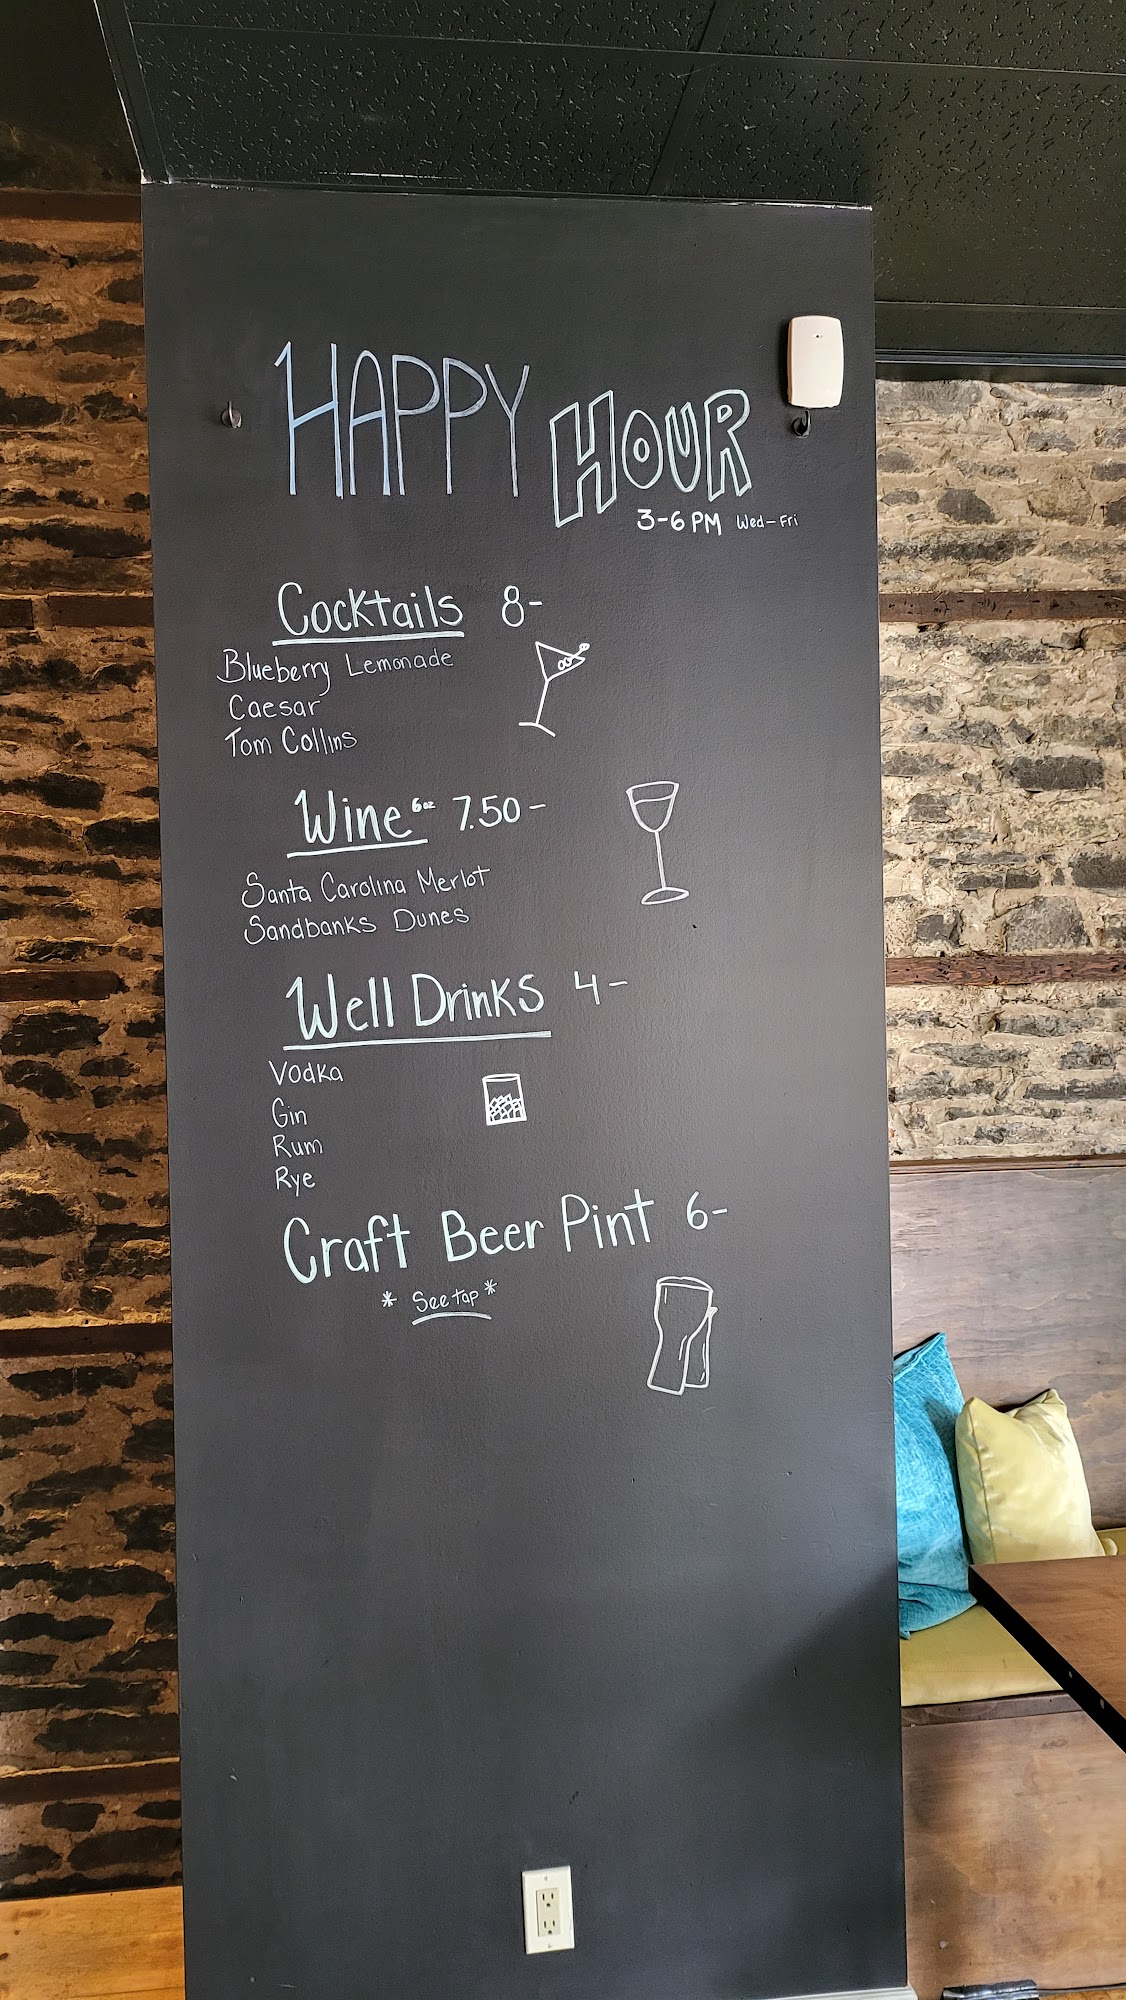 HAPPY HOUR
3-6 PM Wed-Fri
Cocktails 8-
Blueberry Lemonade
Caesar
Tom Collins
Wine 6oz 7.50-
Santa Carolina Merlot
Sandbanks Dunes
Well Drinks 4-
Vodka
Gin
Rum
Rye
Craft Beer Pint 6-
* See tap *